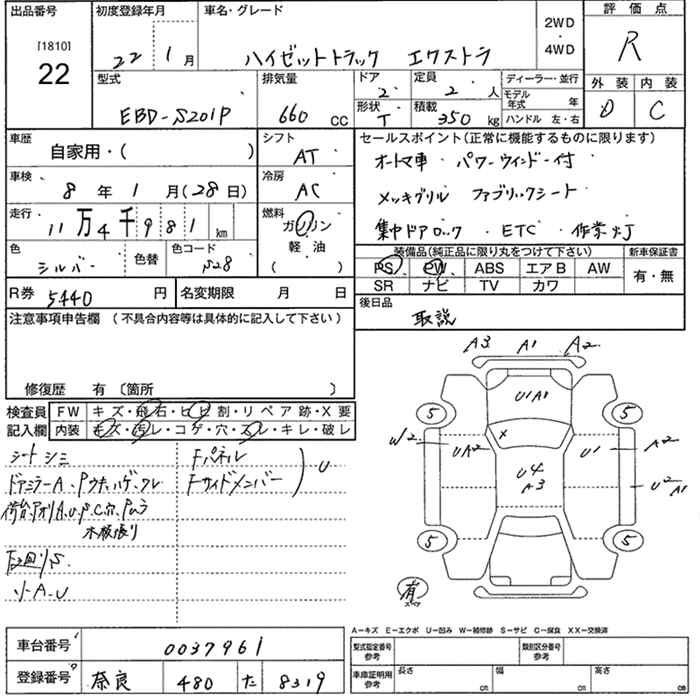 出品番号 初度登録年月 車名・グレード 2WD・4WD 評価点
[1810] 22 22 1月 ハイゼットトラック エクストラ R
型式 排気量 ドア 2 定員 2人 ディーラー・並行 外装 内装
EBD-S201P 660 CC 形状 T 積載 350 kg モデル年式 年 ハンドル 左・右 D C
車歴 自家用・( ) シフト AT セールスポイント(正常に機能するものに限ります)
車検 8年1月(28日) 冷房 AC オートマ車・パワーウィンドー付
メッキグリル ファブリックシート
走行 11万4千981 km 燃料 ガソリン 軽油 ( ) 集中ドアロック・ETC・作業灯
色 シルバー 色替 色コード S28 装備品(純正品に限り丸をつけて下さい) 新車保証書
PS PW ABS エアB AW 有・無
R券 5440円 名変期限 月 日 SR ナビ TV カワ
注意事項申告欄(不具合内容等は具体的に記入して下さい) 後日品
取説
修復歴 有 〔箇所 〕
検査員 FW キズ・飛石・ヒビ割・リペア跡・X要
記入欄 内装 キズ・汚レ・コゲ・穴・スレ・キレ・破レ
シートシミ Fパネル
ドアミラーA、 Fサイドメンバー U
木板張り
A3 A1 A2
U1 A1
5 5
X
W2 UA2 U4 A3 U1 A2
U2 A1
5 5
有
スペア
A-キズ E-エクボ U-凹み W-補修跡 S-サビ C-腐食 XX-交換済
車台番号 0037961 型式指定番号 参考 類別区分番号 参考
登録番号 奈良 480 た 8319 車庫証明用 参考 長さ cm 幅 cm 高さ cm